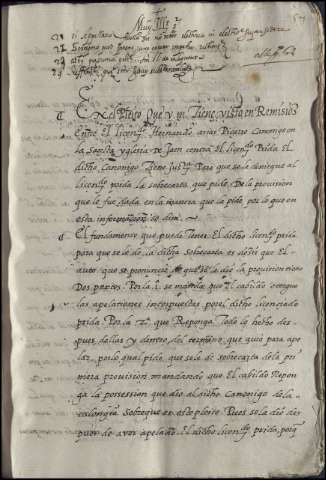 Muy Ill.e s.r
En el Pleyto Que v. m. Tiene visto en Remision
Entre El licen.do Hernando arias Prieto Canonigo en
la Sancta yglesia de Jaen contra El licen.do Prida El
dicho Canonigo Tiene Just.a Para que se le deniegue al
licen.do prida la sobrecarta que pide De la provision
que le fue dada en la manera que la pide por lo que en
esta informaçion se dira.
El fundamento que puede tener El dicho licen.do prida
para que se le de la dicha sobrecarta es deçir que El
auto que se pronunçio Que se le dio la provision tiene
Dos partes. Por la 1.a se manda que El cabildo otorgue
las apelaçiones interpuestas por el dicho licençiado
prida. Por la 2.a que Reponga Todo lo hecho des
pues dellas y dentro del termino que tuvo para ape
lar, por lo qual pide que se le de sobrecarta de la pri
mera provision mandando que El cabildo Repon
ga la possession que dio al dicho Canonigo de la
calongia sobre que es este pleito. Pues se la dio des
pues de aver apelado El dicho licen.do prida, porq